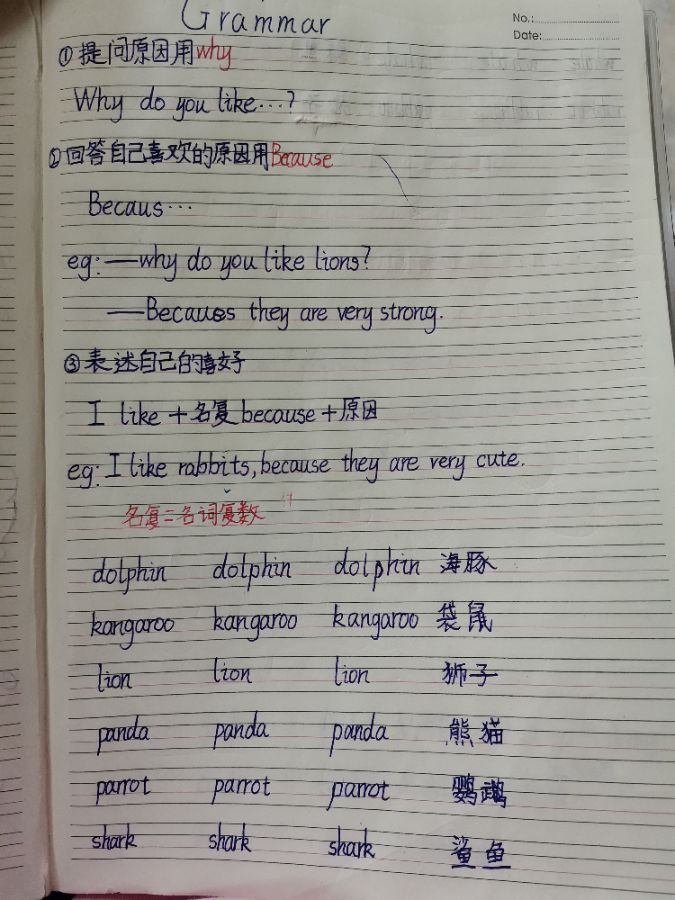 Grammar
No.:
Date:
①提问原因用why
Why do you like…?
②回答自己喜欢的原因用Because
Becaus…
eg:—why do you like lions?
—Becaues they are very strong.
③表述自己的喜好
I like+名复because+原因
eg:I like rabbits,because they are very cute.
名复=名词复数
dolphin dolphin dolphin 海豚
kangaroo kangaroo kangaroo 袋鼠
lion lion lion 狮子
panda panda panda 熊猫
parrot parrot parrot 鹦鹉
shark shark shark 鲨鱼